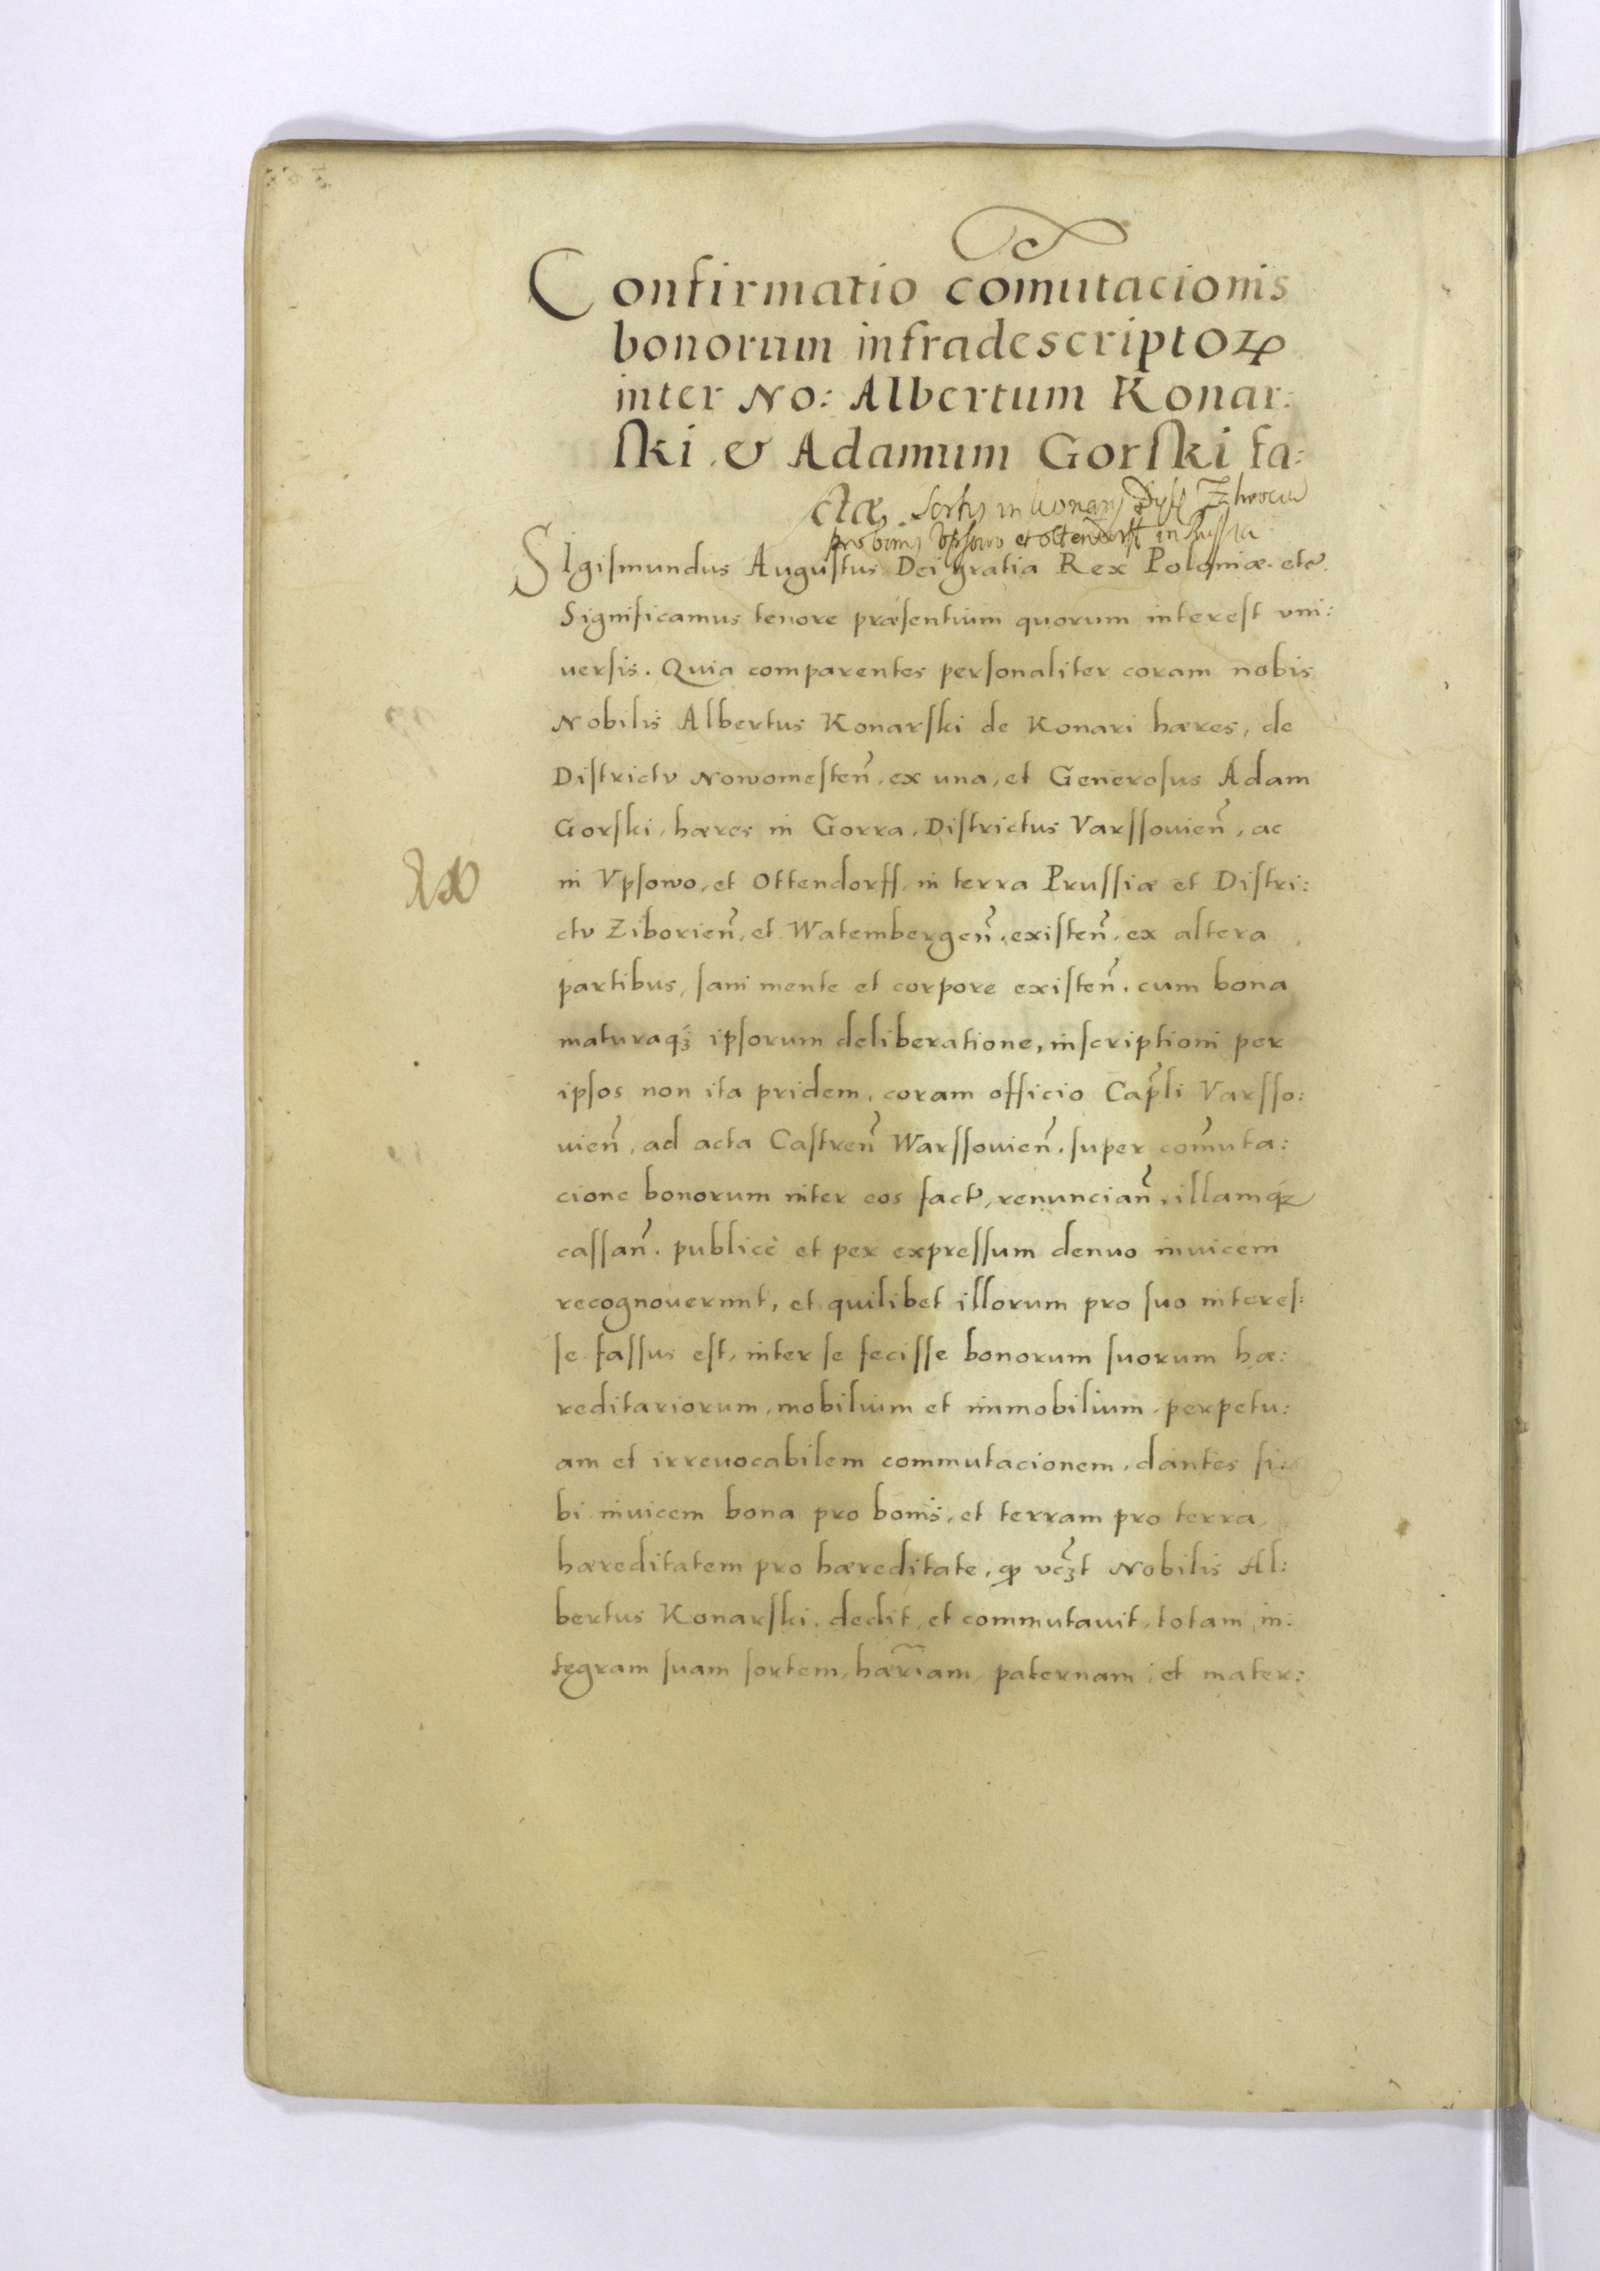 Confirmatio com̃utacionis
bonorum infradescriptoꝝ
inter No: Albertum Konar:
ſki & Adamum Gorſki fa:
ctæ. Sortis in Konary
pro bonis Vpsowo et Ottendorff in Prussia
SIgiſmundus Auguſtus Dei gratia Rex Poloniæ. etc̃.
Significamus tenore præſentium quorum intereſt vni:
uerſis. Quia comparentes perſonaliter coram nobis
Nobilis Albertus Konarſki de Konari hæres, de
Diſtrictu Nowomeſten̄, ex una, et Generoſus Adam
Gorſki, hæres in Gorra, Diſtrictus Varſſouien̄, ac
in Vpſowo, et Ottendorff, in terra Pruſſiæ et Diſtri:
ctu Ziborien̄, et Watembergen̄, exiſten̄, ex altera
partibus, ſani mente et corpore exiſten̄, cum bona
maturaqꝫ ipſorum deliberatione, inſcriptioni per
ipſos non ita pridem, coram officio Cap̄li Varſſo:
uien̄, ad acta Caſtren̄ Warſſouien̄, ſuper com̃uta:
cione bonorum inter eos fact̃, renuncian̄, illamqꝫ
caſſan̄. publicè et per expreſſum denuo inuicem
recognouerunt, et quilibet illorum pro ſuo intereſ:
ſe faſſus eſt, inter ſe feciſſe bonorum ſuorum hæ:
reditariorum, mobilium et immobilium, perpetu:
am et irreuocabilem commutacionem, dantes ſi:
bi inuicem bona pro bonis, et terram pro terra,
hæreditatem pro hæreditate, ꝙ vcꝫt Nobilis Al:
bertus Konarſki, dedit, et commutauit, totam, in:
tegram ſuam ſortem, hær̃iam, paternam, et mater: